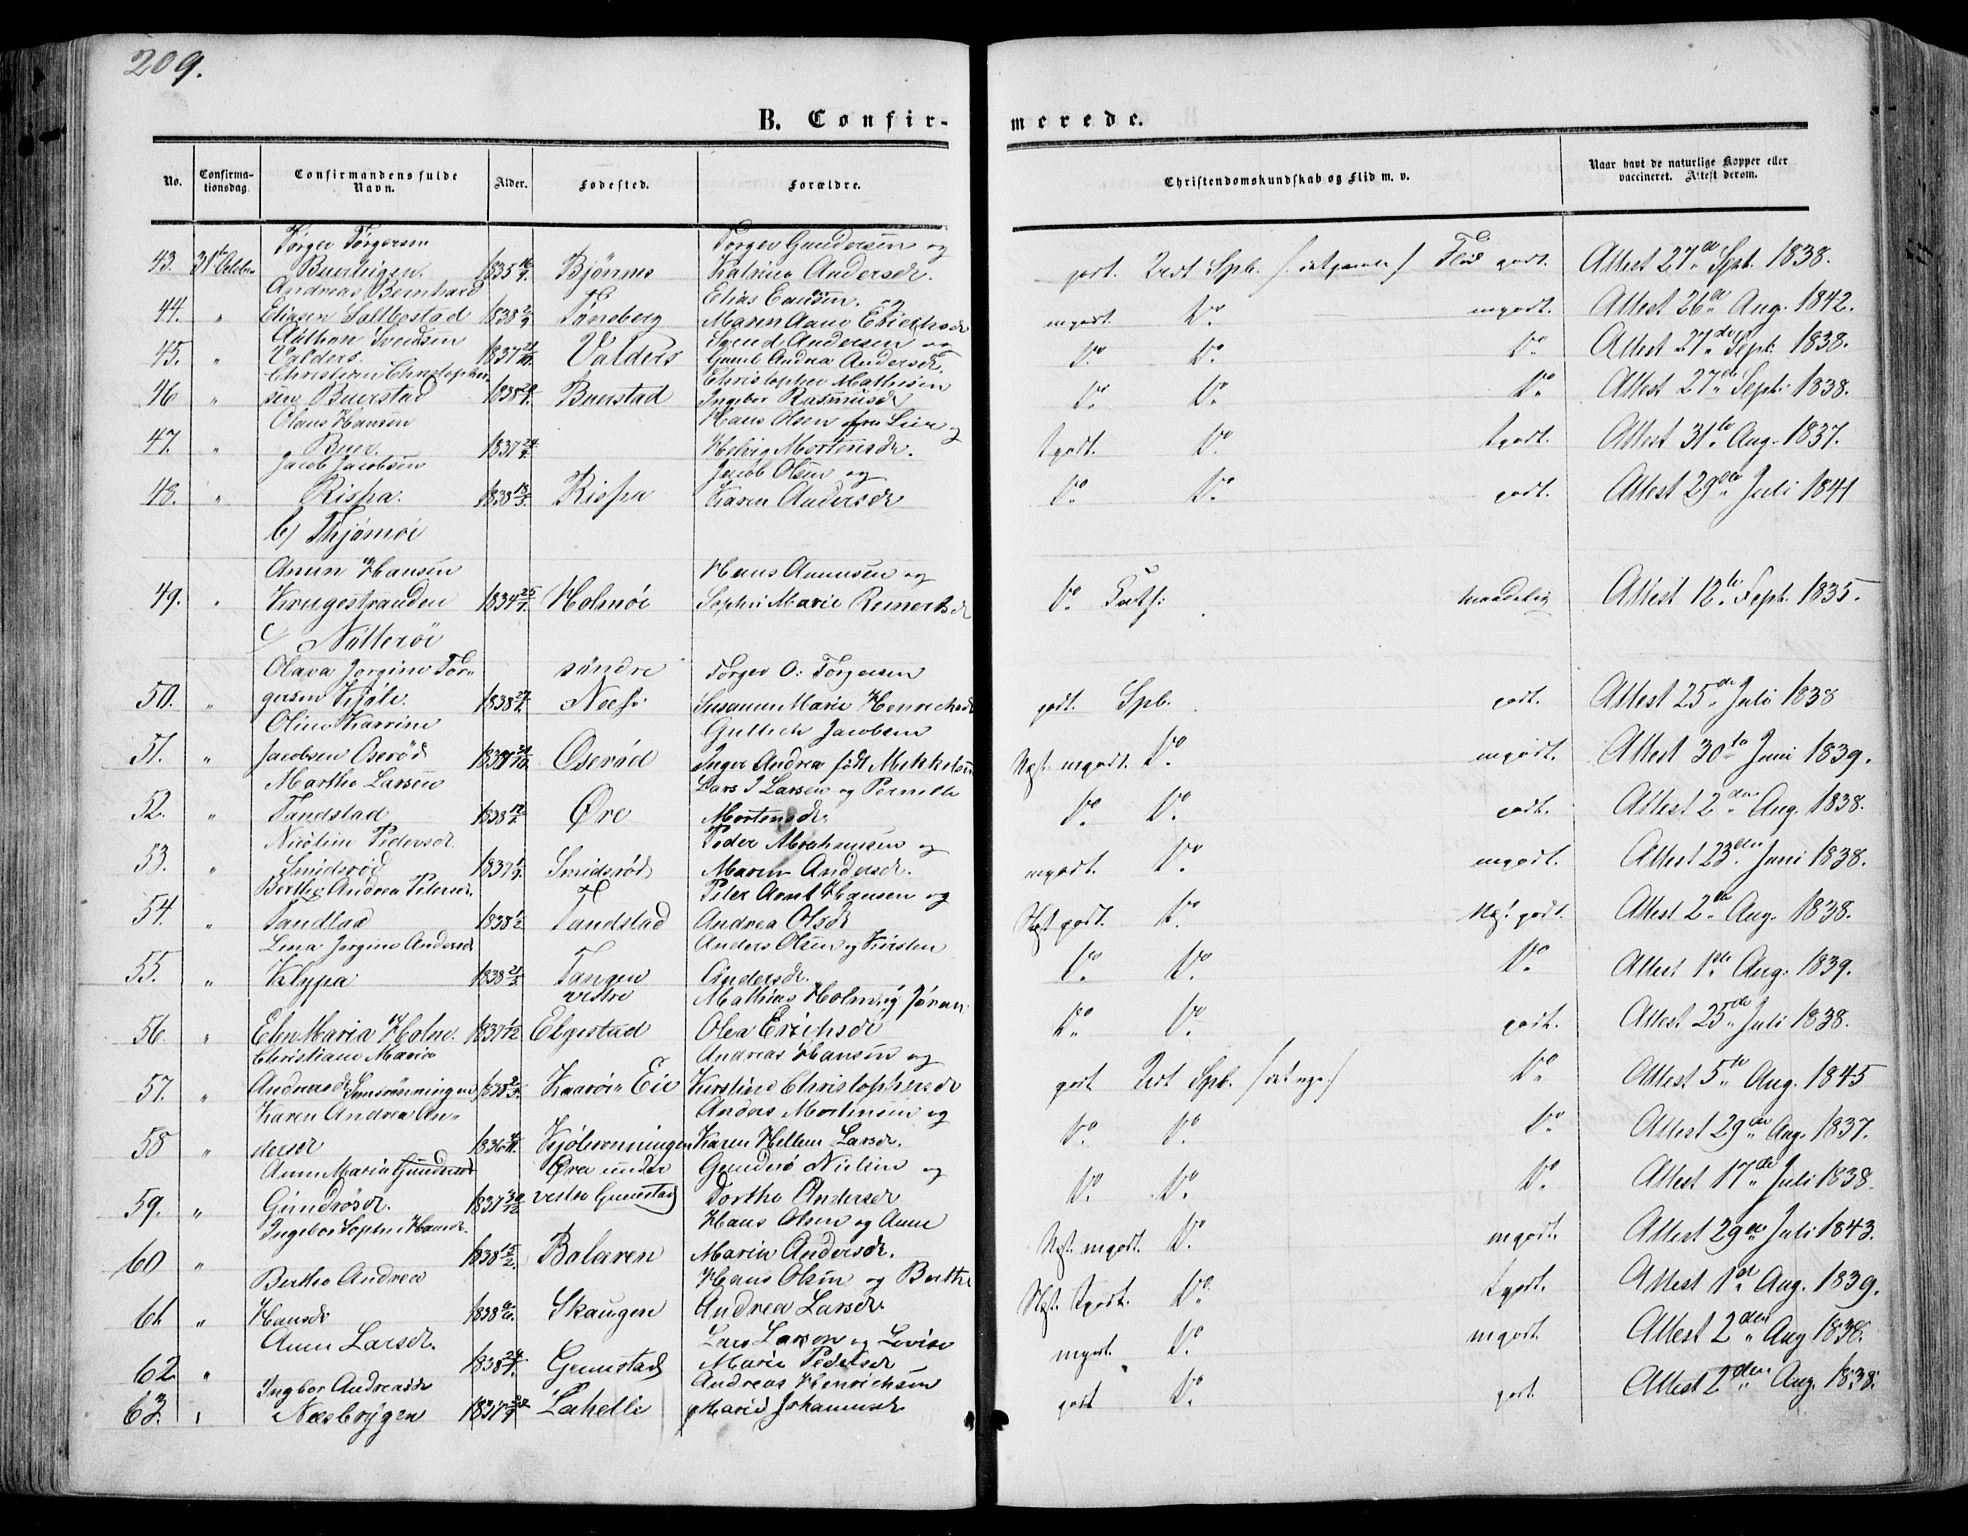 209.
B. Confir- merede.
No. Confirma-tionsdag. Confirmandens fulde Navn. Alder. Fødested. Forældre. Christendomskundskab og Flid m. v. Naar havt de naturlige Kopper eller vaccineret. Attest derom.
Torger Torgersen Torger Gundersen og
43. 31te October 1835 Bjønnes Katrine Andersdr. godt. Flid godt. Attest 27de Spt. 1838.
Andreas Bernhard Elias
44. " Eliasen Saltbostad 1838 Tønsberg Maren Anne mgodt. Do mgodt. Attest 26de Aug. 1842.
Svendsen Svend Andersen og
45. " Valders. 1837 Valders Andrea Andersdr. Do Do Do Attest 27de Sept. 1838.
Christian Christopher- Christopher Mathisen
46 " sen Buerstad 1838 Buerstad Ingebor Rasmusdr Do Do Do Attest 27de Sept. 1838.
Olaus Hansen Hans Olsen fra Lier og
47. " Buer 1837 Helvig Mortensdr. tgodt. Do tgodt. Attest 31te Aug. 1837.
Jacob Jacobsen Jacob Olsen og
48. " Rispa. 1838 Rispa Karen Andersdr Do Do godt. Attest 29de Juli 1841
b) Thjømøe
Hansen Hans og
49. " Krugestranden 1834 Holmøe Sophie Marie Reinertsdr Do maadelig Attest 12te Sept. 1835.
c) Nøtterøe
Olava Jorgine Tor- søndre Torger O. Torgersen
50. " gersen 1838 Næs Susanne Marie Henrichsdr godt. Spb. godt. Attest 25de Juli 1838
Oline Karrine Gullich Jacobsen
51. " Jacobsen Oserød 1838 Oserød Inger Andrea født Mikkelsen Næst mgodt. Do mgodt. Attest 30te Juni 1839.
Marthe Larsen Lars J Larsen og Pernille
52. " Tandstad 1838 Øre Mortensdr. Do Do godt. Attest 2den Aug. 1838.
Nicoline Pedersdr. Peder Abrahamsen og
53. " Smidsrød 1837 Smidsrød Maren Andersdr. mgodt. Do mgodt. Attest 23de Juni 1838.
Berthe Andrea Petersdr. Peter Arnt Hansen og
54. " Tandstad 1838 Tandstad Andrea Olsdr Næst godt. Do Næst godt. Attest 2den Aug. 1838.
Lina Jorgine Andersdr Anders Olsen og Kirsten
55. " Klyppa 1838 Tangen Andersdr. Do Do Do Attest 1ste Aug. 1839.
vestre Mathias Holm og Jøran
56. " Elen Maria Holm. 1837 Elgestad Olea Erichsdr Do Do godt. Attest 25de Juli 1838.
Christiane Marie Andreas Hansen og
57. " Andreasdr 1838 Eie Kirstine Christophersdr godt Spb. Do Attest 5te Aug. 1845
Karen Andrea An- Anders Mortensen og
58 " dersdr 1836 Kjølerønningen Karen Hellene Larsdr. Do Do Do Attest 29de Aug. 1837.
Anne Maria Gundersdr Øre under Gunderø Nielsen og
59. " Gundrøsdr. 1837 vestre Gunestad Dorthe Andersdr Do Do Do Attest 17de Juli 1838.
Ingebor Sophie Hansdr. Hans Olsen og Anne
60 " 1838 Bolæren Marie Andersdr. Næst mgodt. Do mgodt. Attest 29de Juli 1843.
Berthe Andrea Hans Olsen og Berthe
61. " Hansdr 1838 Skaugen Andrea Larsdr. Næst tgodt. Do tgodt. Attest 1ste Aug. 1839.
Anne Larsdr. Lars Larsen og Lovise
62 " 1838 Gunestad Marie Pedersdr mgodt. Do mgodt. Attest 2den Aug 1838.
Ingbor Andreasdr Andreas Henrichsen
63. " Næsbrygen 1837 Lahelle Marie Johannesdr godt Do godt. Attest 2den Aug. 1838.